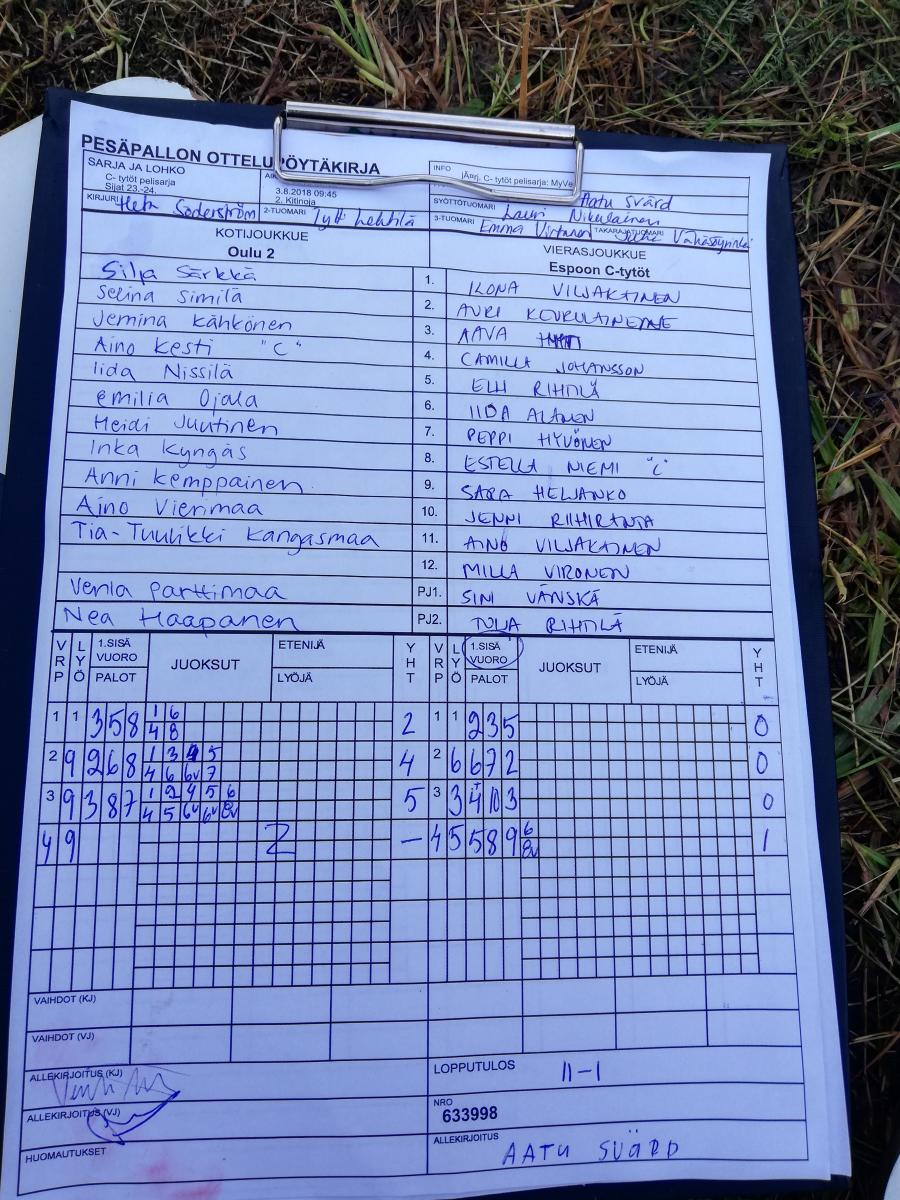 PESÄPALLON OTTELUPÖYTÄKIRJA
SARJA JA LOHKO
C- tytöt pelisarja
Sijat 23.-24.
3.8.2018 09:45
2. Kitinoja
INFO
C- tytöt pelisarja:
Aatu Svärd
SYÖTTÖTUOMARI Lauri Nikulainen
KIRJURI Heta Soderström
2-TUOMARI Lehtilä
3-TUOMARI Emma Virtanen
TAKARAJATUOMARI
KOTIJOUKKUE
Oulu 2
VIERASJOUKKUE
Espoon C-tytöt
Silja Särkkä 1. ILONA VILJAKAINEN
Selina Similä 2. AURI
Jemina Kähkönen 3. AAVA
Aino Kesti "C" 4. CAMILLA JOHANSSON
Iida Nissilä 5. ELLI RIHTILÄ
Emilia Ojala 6. IIDA ALANEN
Heidi Juutinen 7. PEPPI HYVÖNEN
Inka Kyngäs 8. ESTELLA NIEMI "C"
Anni Kemppainen 9. SARA HELJANKO
Aino Vierimaa 10. JENNI RIIHIRANTA
Tia-Tuulikki Kangasmaa 11. AINO VILJAKAINEN
12. MILLA VIRONEN
Venla Parttimaa PJ1. SINI VÄNSKÄ
Nea Haapanen PJ2. TUIJA RIHTILÄ
VRP LYÖ 1.SISÄ VUORO PALOT JUOKSUT ETENIJÄ LYÖJÄ YHT VRP LYÖ 1.SISÄ VUORO PALOT JUOKSUT ETENIJÄ LYÖJÄ YHT
1 1 3 5 8 1 6 2 1 1 2 3 5 0
4 8
2 9 2 6 8 1 3 5 4 2 6 6 7 2 0
4 6 6v 7
3 9 3 8 7 1 2 4 5 6 5 3 3 4 10 3 0
4 5 6v 6v 8v
4 9 2 – 4 5 5 8 9 6 1
8v
VAIHDOT (KJ)
VAIHDOT (VJ)
ALLEKIRJOITUS (KJ)
LOPPUTULOS 11-1
ALLEKIRJOITUS (VJ)
NRO
633998
HUOMAUTUKSET
ALLEKIRJOITUS
AATU SVÄRD